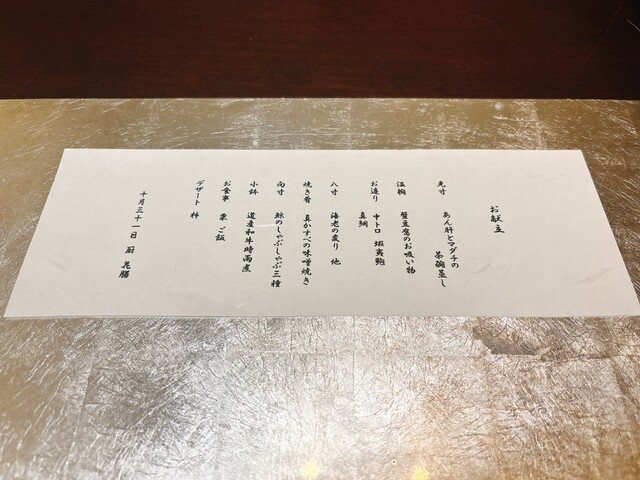 お献立
先寸 あん肝とマダチの
茶碗蒸し
温椀 蟹豆腐のお吸い物
お造り 中トロ 蝦夷鮑
真鯛
八寸 海老の変り 他
焼き肴 真かすべの味噌焼き
向寸 鯨のしゃぶしゃぶ三種
小鉢 道産和牛時雨煮
お食事 栗ご飯
デザート 柿
十月三十一日 厨 晃膳